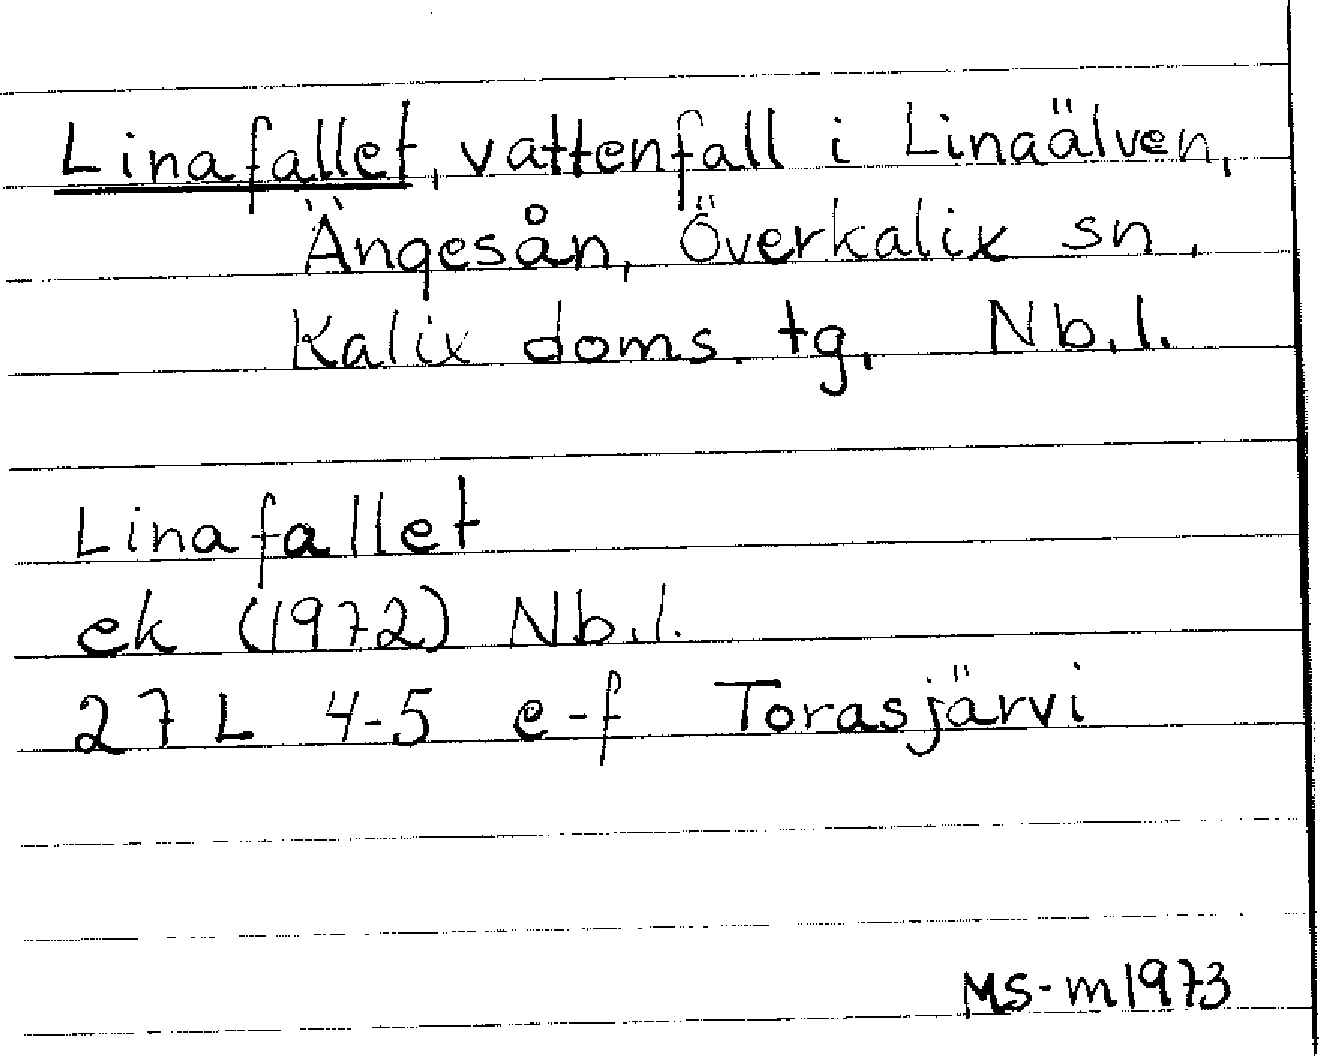 Linafallet, vattenfall i Linaälven,
Ängesån, Överkalix sn,
Kalix doms. tg. Nb.l.
Linafallet
ek (1972) Nb.l.
27 L 4-5 e-f Torasjärvi
MS-m1973